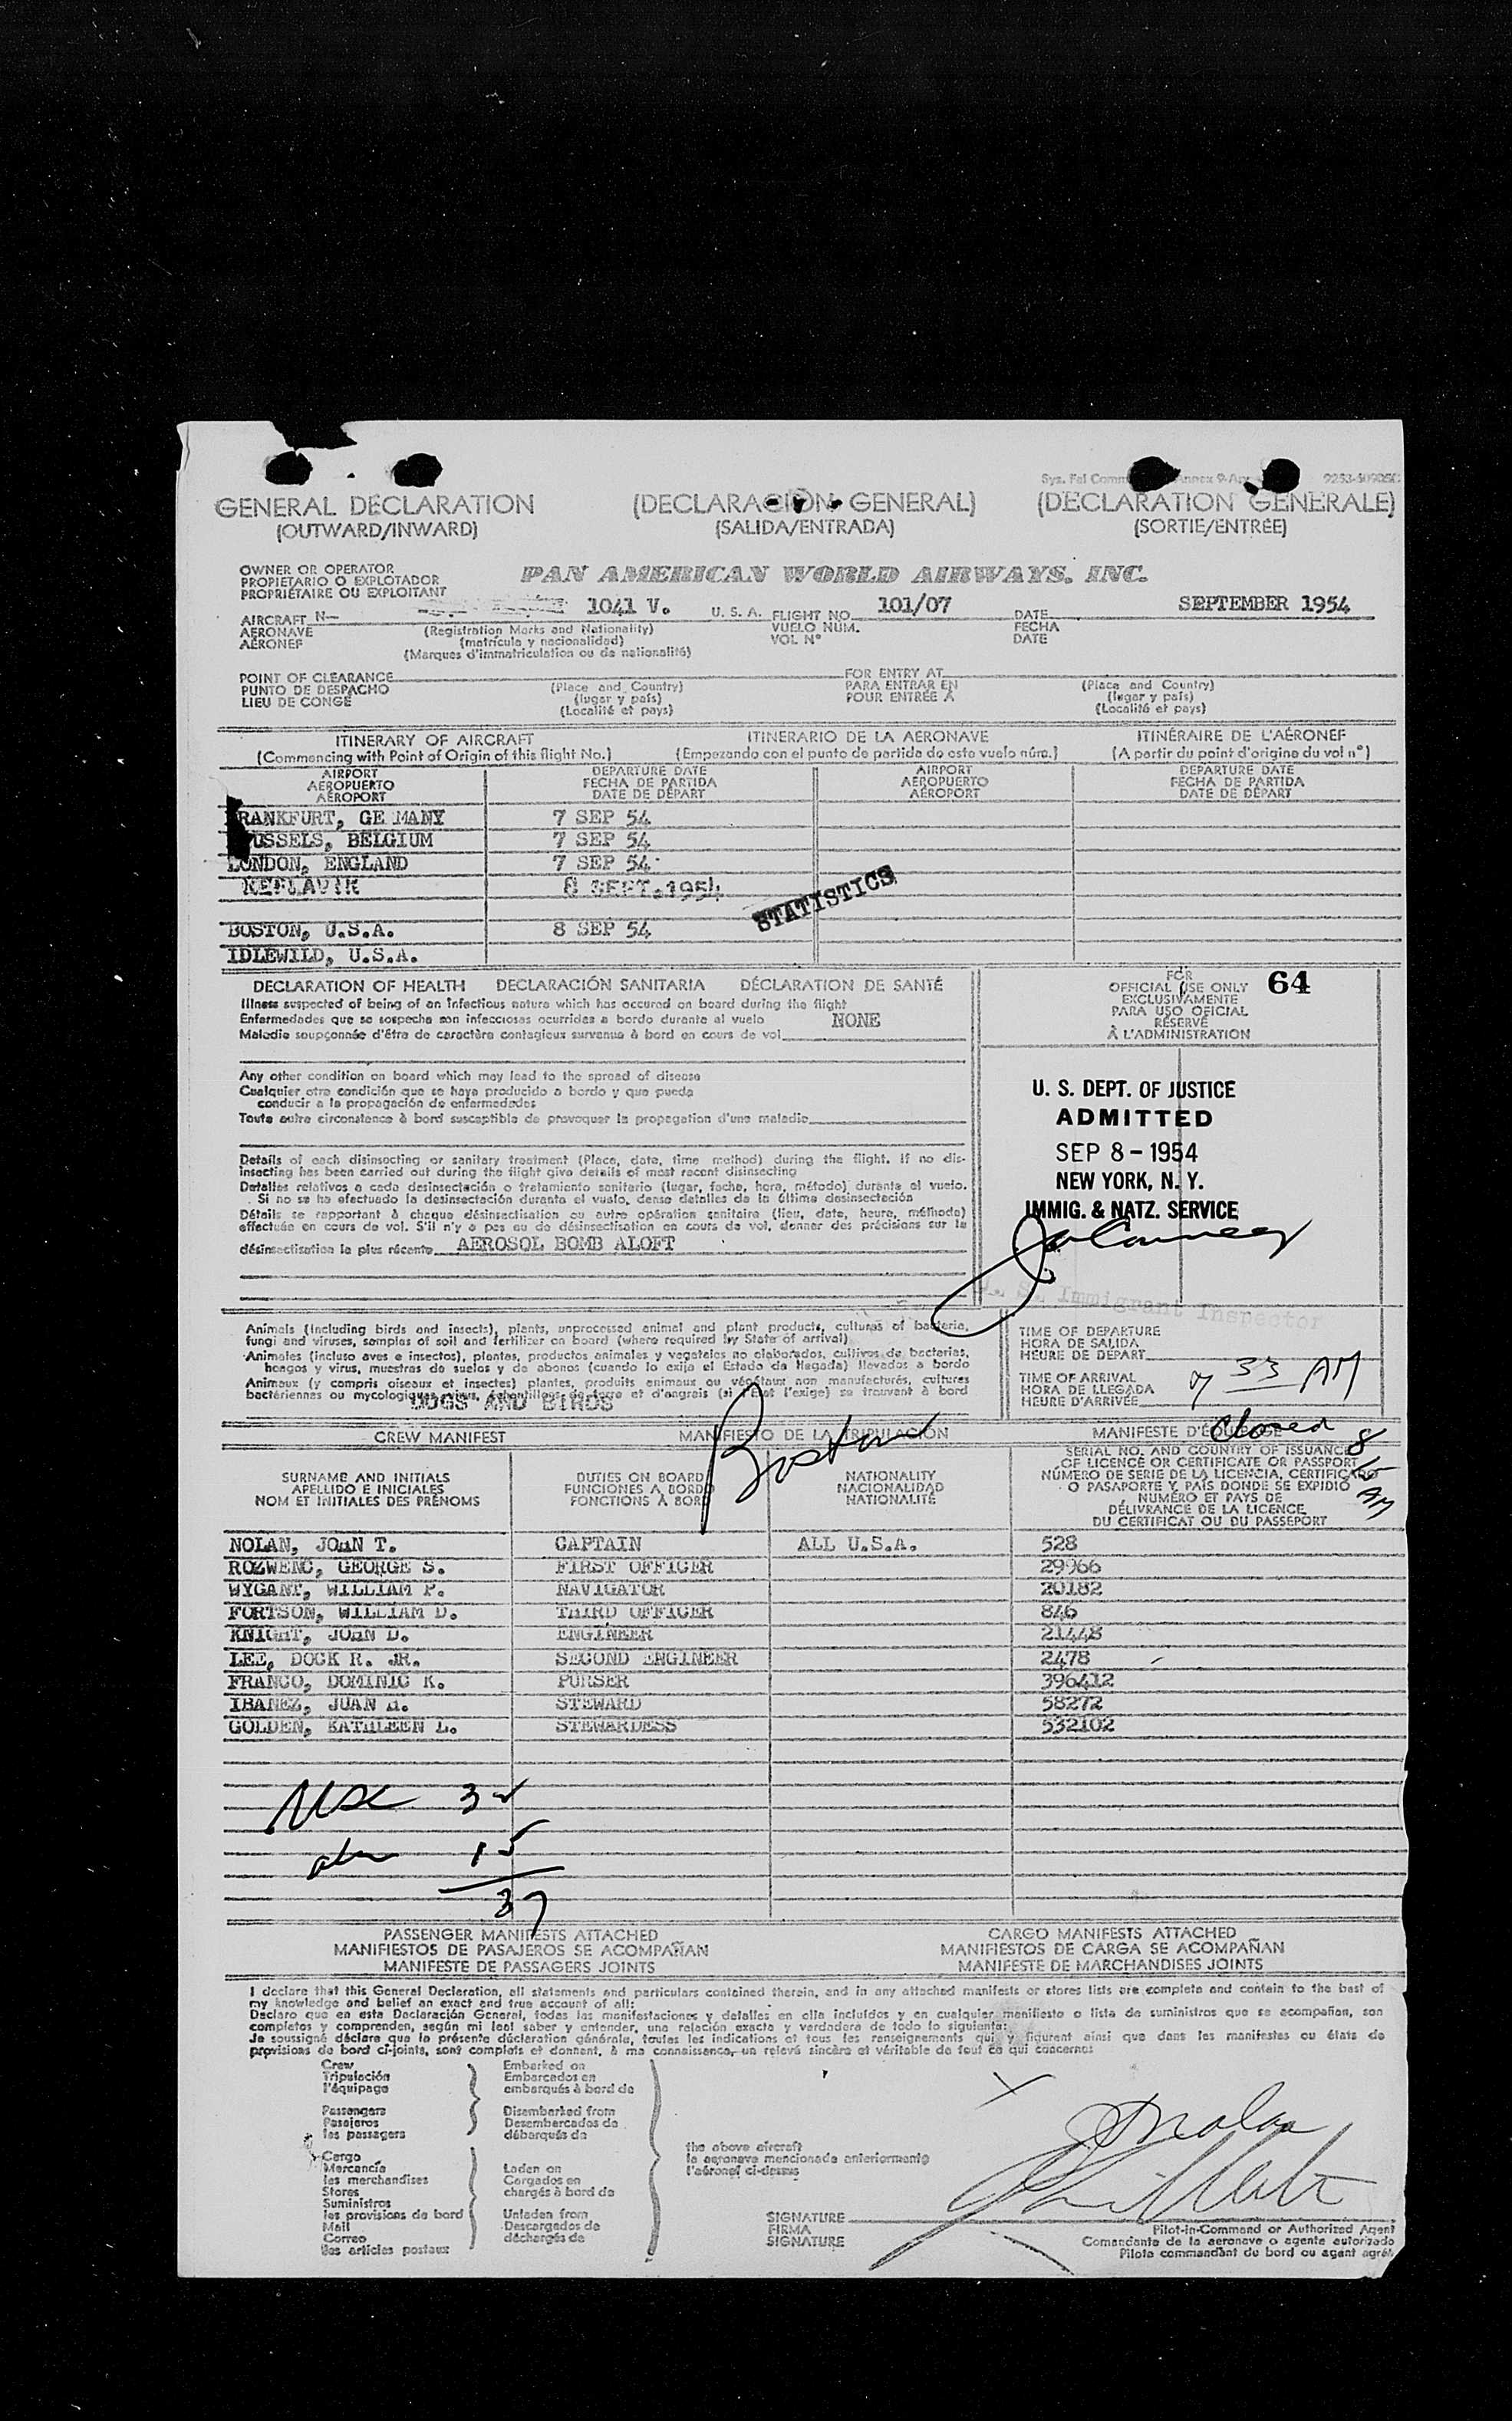 Sys. Fal Comm Annex 9-Apr
GENERAL DECLARATION (DECLARACIÓN GENERAL) (DECLARATION GENERALE)
(OUTWARD/INWARD) (SALIDA/ENTRADA) (SORTIE/ENTRÉE)
OWNER OR OPERATOR
PROPIETARIO O EXPLOTADOR
PROPRIÉTAIRE OU EXPLOITANT
PAN AMERICAN WORLD AIRWAYS, INC.
AIRCRAFT N— 1041 V. U. S. A. FLIGHT NO. 101/07 DATE SEPTEMBER 1954
AERONAVE (Registration Marks and Nationality) VUELO NUM. FECHA
AÉRONEF (matrícula y nacionalidad) VOL N° DATE
(Marques d'immatriculation ou de nationalité)
POINT OF CLEARANCE FOR ENTRY AT
PUNTO DE DESPACHO (Place and Country) PARA ENTRAR EN (Place and Country)
LIEU DE CONGÉ (lugar y país) POUR ENTRÉE À (lugar y país)
(Localité et pays) (Localité et pays)
ITINERARY OF AIRCRAFT ITINERARIO DE LA AERONAVE ITINÉRAIRE DE L'AÉRONEF
(Commencing with Point of Origin of this flight No.) (Empezando con el punto de partida de este vuelo núm.) (A partir du point d'origine du vol n°)
AIRPORT DEPARTURE DATE AIRPORT DEPARTURE DATE
AEROPUERTO FECHA DE PARTIDA AEROPUERTO FECHA DE PARTIDA
AÉROPORT DATE DE DÉPART AÉROPORT DATE DE DÉPART
RANKFURT, GE MANY 7 SEP 54
USSELS, BELGIUM 7 SEP 54
LONDON, ENGLAND 7 SEP 54
KEFLAVIK 8 SEPT.1954
STATISTICS
BOSTON, U.S.A. 8 SEP 54
IDLEWILD, U.S.A.
DECLARATION OF HEALTH DECLARACIÓN SANITARIA DÉCLARATION DE SANTÉ
Illness suspected of being of an infectious nature which has occured on board during the flight
Enfermedades que se sospecha son infecciosas ocurridas a bordo durante al vuelo NONE
Maladie soupçonnée d'être de caractère contagieux survenue à bord en cours de vol
FOR
OFFICIAL USE ONLY 64
EXCLUSIVAMENTE
PARA USO OFICIAL
RÉSERVÉ
À L'ADMINISTRATION
Any other condition on board which may lead to the spread of disease
Cualquier otra condición que se haya producido a bordo y que pueda
conducir a la propagación de enfermedades
Toute autre circonstance à bord susceptible de provoquer la propagation d'une maladie
U. S. DEPT. OF JUSTICE
ADMITTED
SEP 8 - 1954
NEW YORK, N. Y.
IMMIG. & NATZ. SERVICE
U. S. Immigrant Inspector
Details of each disinsecting or sanitary treatment (Place, date, time method) during the flight. If no dis-
insecting has been carried out during the flight give details of most recent disinsecting
Detalles relativos a cada desinsectación o tratamiento sanitario (lugar, fecha, hora, método) durante el vuelo.
Si no se ha efectuado la desinsectación durante el vuelo, dense detalles de la última desinsectación
Détails se rapportant à chaque désinsectisation ou autre opération sanitaire (lieu, date, heure, méthode)
effectuée en cours de vol. S'il n'y a pas eu de désinsectisation en cours de vol, donner des précisions sur la
désinsectisation la plus récente AEROSOL BOMB ALOFT
Animals (including birds and insects), plants, unprocessed animal and plant products, cultures of bacteria,
fungi and viruses, samples of soil and fertilizer on board (where required by State of arrival)
Animales (incluso aves e insectos), plantas, productos animales y vegetales no elaborados, cultivos de bacterias,
hongos y virus, muestras de suelos y de abonos (cuando lo exija el Estado de llegada) llevados a bordo
Animaux (y compris oiseaux et insectes) plantes, produits animaux ou végétaux non manufacturés, cultures
bactériennes ou mycologiques, virus, échantillons de terre et d'engrais (si l'État l'exige) se trouvant à bord
DOGS AND BIRDS
TIME OF DEPARTURE
HORA DE SALIDA
HEURE DE DÉPART
TIME OF ARRIVAL
HORA DE LLEGADA 7 33 AM
HEURE D'ARRIVÉE
Closed 8 15 AM
Boston
CREW MANIFEST MANIFIESTO DE LA TRIPULACIÓN MANIFESTE D'ÉQUIPAGE
SURNAME AND INITIALS
APELLIDO E INICIALES
NOM ET INITIALES DES PRÉNOMS
DUTIES ON BOARD
FUNCIONES A BORDO
FONCTIONS À BORD
NATIONALITY
NACIONALIDAD
NATIONALITÉ
SERIAL NO. AND COUNTRY OF ISSUANCE
OF LICENCE OR CERTIFICATE OR PASSPORT
NÚMERO DE SERIE DE LA LICENCIA, CERTIFICADO
O PASAPORTE Y PAÍS DONDE SE EXPIDIÓ
NUMÉRO ET PAYS DE
DÉLIVRANCE DE LA LICENCE
DU CERTIFICAT OU DU PASSEPORT
NOLAN, JOHN T. CAPTAIN ALL U.S.A. 528
ROZWENC, GEORGE S. FIRST OFFICER 29966
WYGANT, WILLIAM P. NAVIGATOR 20182
FORTSON, WILLIAM D. THIRD OFFICER 846
KNIGHT, JOHN D. ENGINEER 21448
LEE, DOCK R. JR. SECOND ENGINEER 2478
FRANCO, DOMINIC K. PURSER 396412
IBANEZ, JUAN M. STEWARD 58272
GOLDEN, KATHLEEN L. STEWARDESS 532102
USC
15
37
PASSENGER MANIFESTS ATTACHED CARGO MANIFESTS ATTACHED
MANIFIESTOS DE PASAJEROS SE ACOMPAÑAN MANIFIESTOS DE CARGA SE ACOMPAÑAN
MANIFESTE DE PASSAGERS JOINTS MANIFESTE DE MARCHANDISES JOINTS
I declare that this General Declaration, all statements and particulars contained therein, and in any attached manifests or stores lists are complete and contain to the best of
my knowledge and belief an exact and true account of all:
Declaro que en esta Declaración General, todas las manifestaciones y detalles en ella incluídos y en cualquier manifiesto o lista de suministros que se acompañan, son
completos y comprenden, según mi leal saber y entender, una relación exacta y verdadera de todo lo siguiente:
Je soussigné déclare que la présente déclaration générale, toutes les indications et tous les renseignements qui y figurent ainsi que dans les manifestes ou états de
provisions de bord ci-joints, sont complets et donnent, à ma connaissance, un relevé sincère et véritable de tout ce qui concerne:
Crew Embarked on
Tripulación Embarcados en
l'équipage embarqués à bord de
Passengers Disembarked from
Pasajeros Desembarcados de
les passagers débarqués de
the above aircraft
la aeronave mencionada anteriormente
l'aéronef ci-dessus
Cargo
Mercancía Laden on
les merchandises Cargados en
Stores chargés à bord de
Suministros
les provisions de bord Unladen from
Mail Descargados de
Correo déchargés de
les articles postaux
SIGNATURE
FIRMA
SIGNATURE
Pilot-in-Command or Authorized Agent
Comandante de la aeronave o agente autorizado
Pilote commandant du bord ou agent agréé